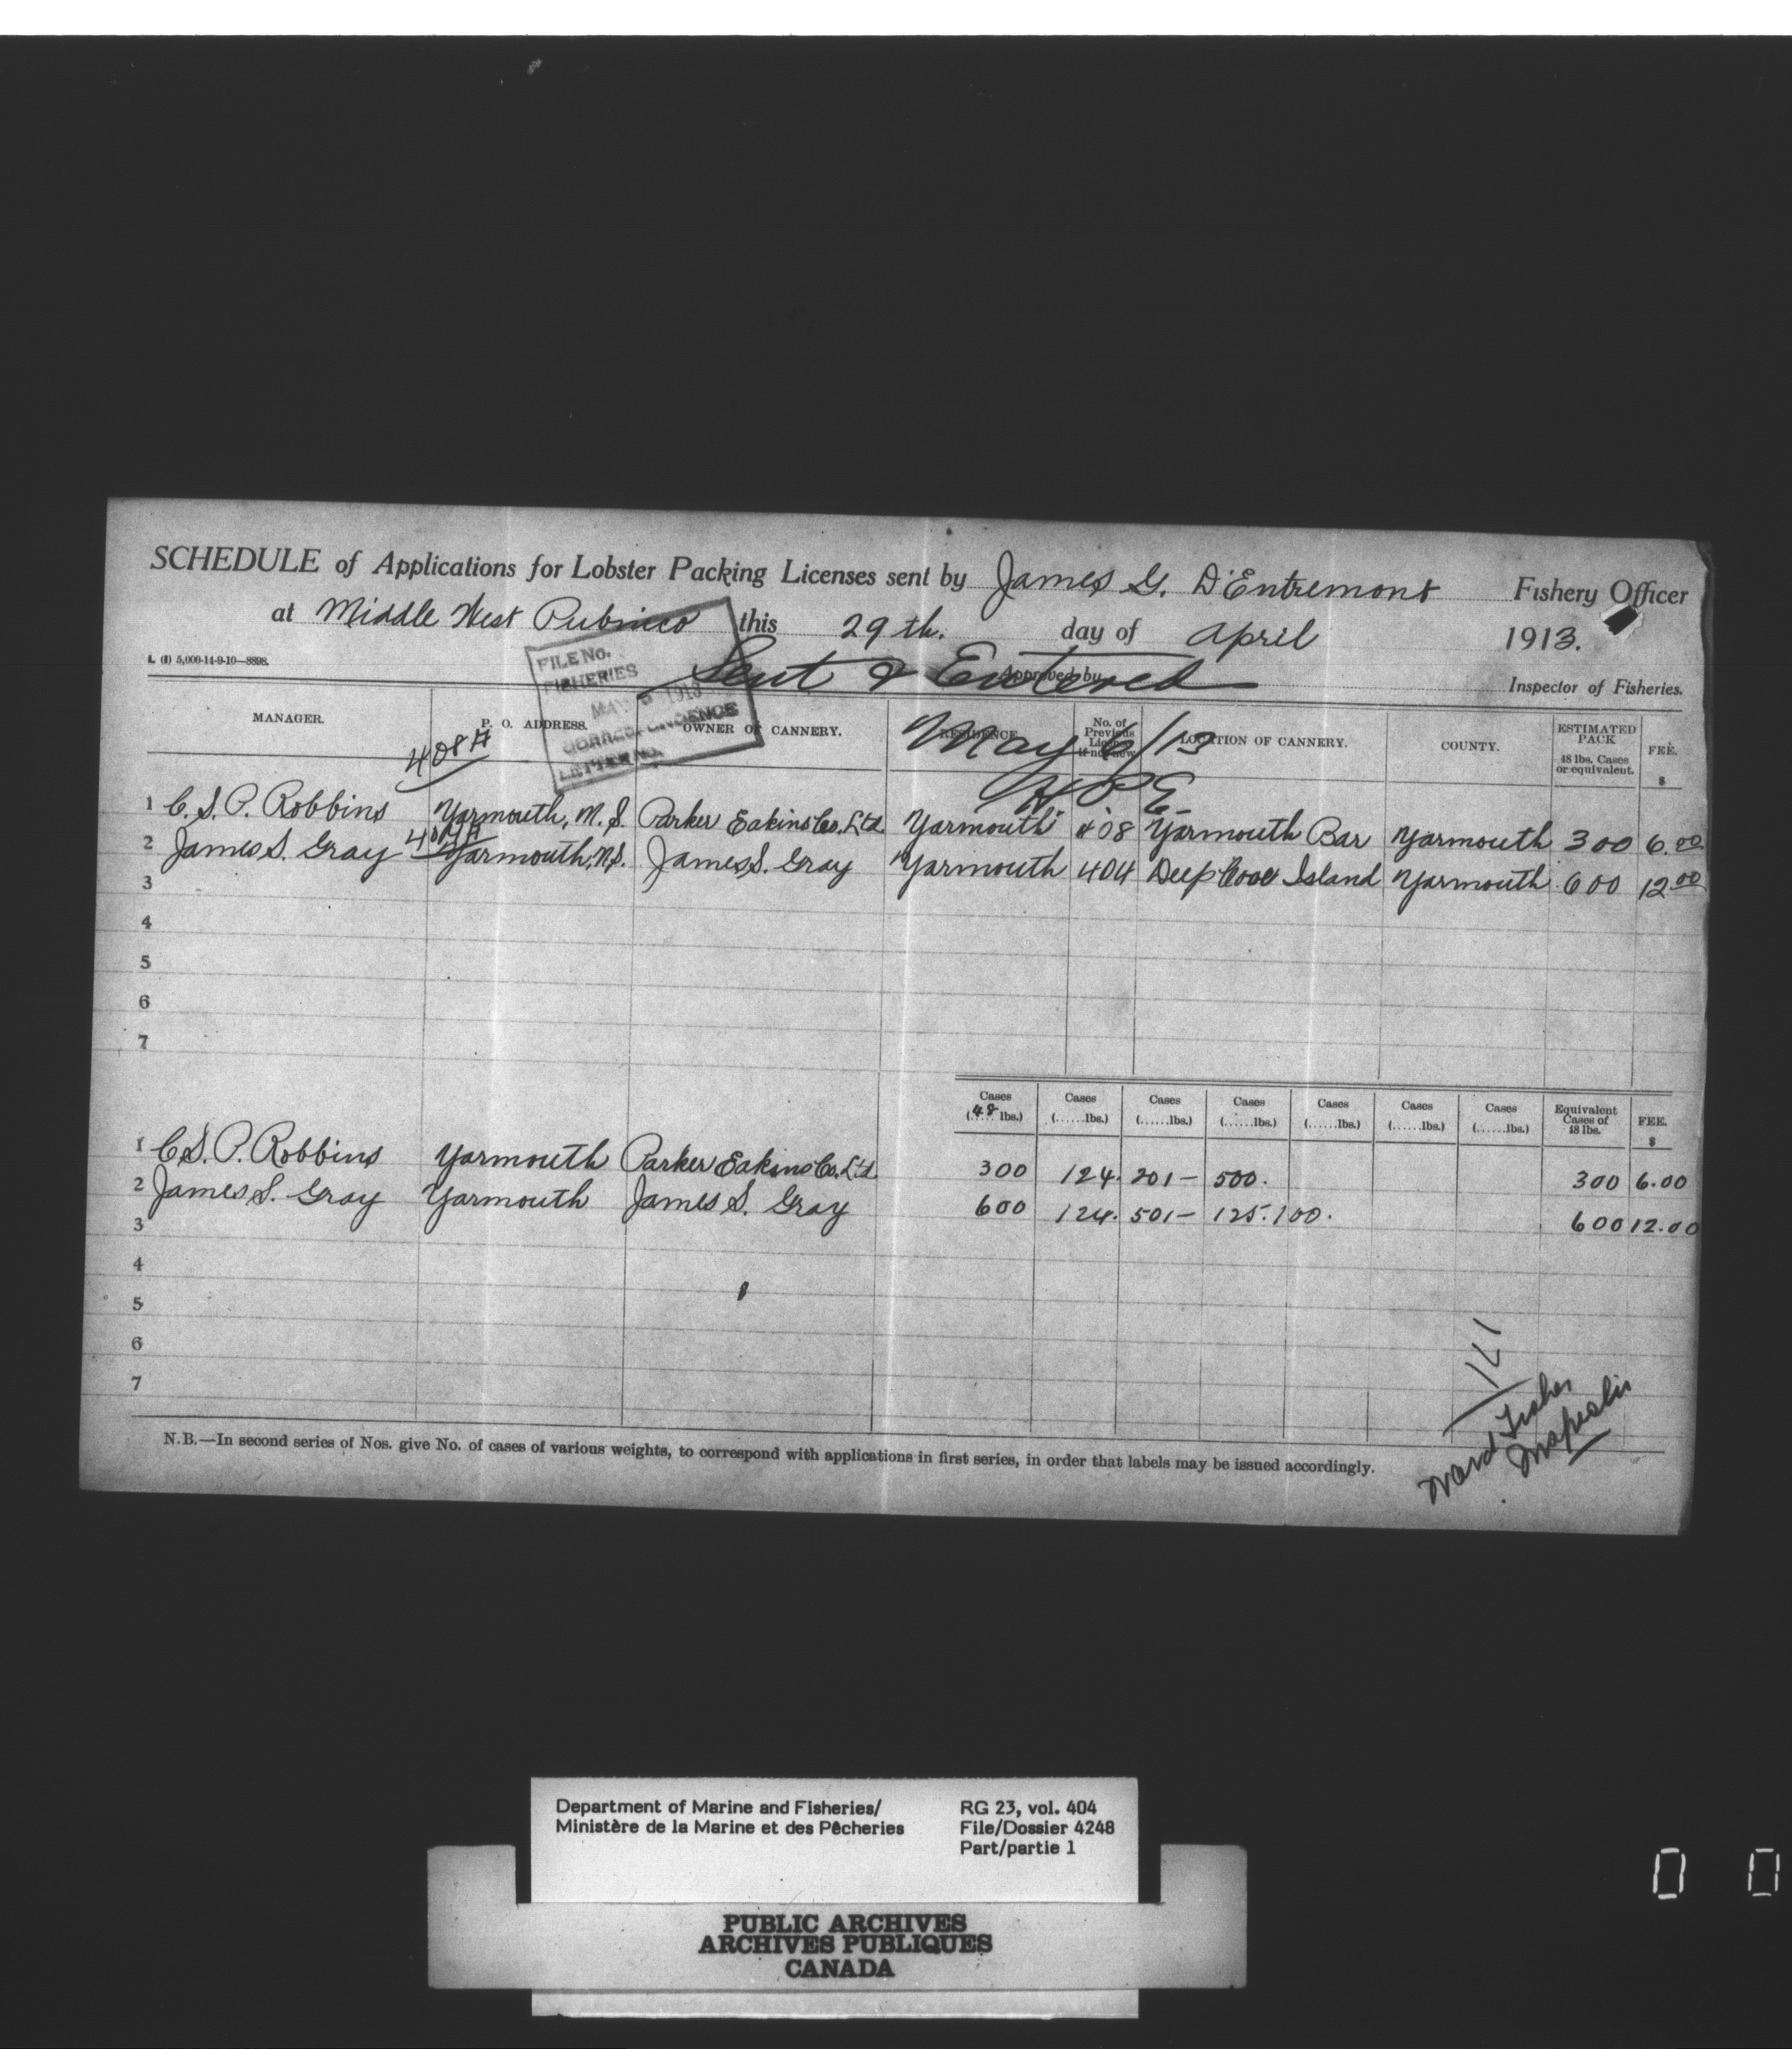 SCHEDULE of Applications for Lobster Packing Licenses sent by James G. D'Entremont Fishery Officer
at Middle West Pubnico this 29th. day of April 1913.
L. (1) 5,000-14-9-10—8898.
Sent & Entered
Approved by Inspector of Fisheries.
FILE No.
FISHERIES
MAY 1913
CORRESPONDENCE
LETTER No.
May 6/13
H P E
MANAGER. P. O. ADDRESS. OWNER OF CANNERY. RESIDENCE No. of Previous License if not new LOCATION OF CANNERY. COUNTY. ESTIMATED PACK 48 lbs. Cases or equivalent. FEE. $
408A
1 C. S. P. Robbins Yarmouth, N.S. Parker Eakins Co. Ltd. Yarmouth 408 Yarmouth Bar Yarmouth 300 6.00
2 James S. Gray Yarmouth, N.S. James S. Gray Yarmouth 404 Deep Cove Island Yarmouth 600 12.00
3
4
5
6
7
Cases (48 lbs.) Cases (......lbs.) Cases (......lbs.) Cases (......lbs.) Cases (......lbs.) Cases (......lbs.) Cases (......lbs.) Equivalent Cases of 48 lbs. FEE. $
1 C. S. P. Robbins Yarmouth Parker Eakins Co. Ltd. 300 124.201 – 500. 300 6.00
2 James S. Gray Yarmouth James S. Gray 600 124.501 – 125.100. 600 12.00
3
4
5
6
7
Ward Fisher
Inspector
N.B.—In second series of Nos. give No. of cases of various weights, to correspond with applications in first series, in order that labels may be issued accordingly.
Department of Marine and Fisheries/
Ministère de la Marine et des Pêcheries
RG 23, vol. 404
File/Dossier 4248
Part/partie 1
PUBLIC ARCHIVES
ARCHIVES PUBLIQUES
CANADA
0 0